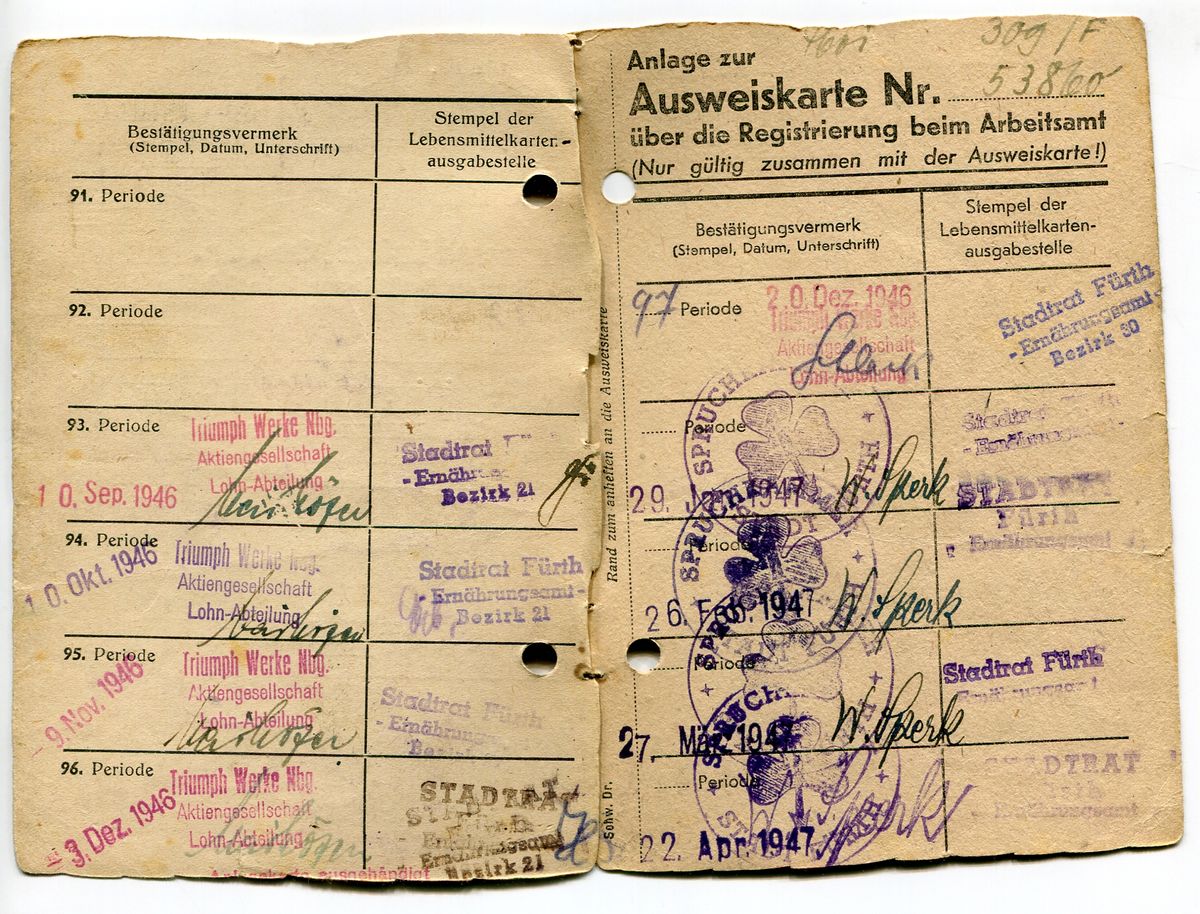 Bestätigungsvermerk
(Stempel, Datum, Unterschrift)
Stempel der
Lebensmittelkarten-
ausgabestelle
91. Periode
92. Periode
93. Periode
Triumph Werke Nbg.
Aktiengesellschaft
Lohn-Abteilung
10. Sep. 1946
Stadtrat Fürth
- Ernährungsamt -
Bezirk 21
94. Periode
10. Okt. 1946
Triumph Werke Nbg.
Aktiengesellschaft
Lohn-Abteilung
Stadtrat Fürth
- Ernährungsamt -
Bezirk 21
95. Periode
- 9. Nov. 1946
Triumph Werke Nbg.
Aktiengesellschaft
Lohn-Abteilung
Stadtrat Fürth
- Ernährungsamt -
Bezirk 21
96. Periode
- 3. Dez. 1946
Triumph Werke Nbg.
Aktiengesellschaft
Lohn-Abteilung
STADTRAT
Fürth
Ernährungsamt
Bezirk 21
Rand zum anheften an die Ausweiskarte
Schw. Dr.
309/F
Anlage zur
Ausweiskarte Nr. 53860
über die Registrierung beim Arbeitsamt
(Nur gültig zusammen mit der Ausweiskarte!)
Bestätigungsvermerk
(Stempel, Datum, Unterschrift)
Stempel der
Lebensmittelkarten-
ausgabestelle
97 Periode
20. Dez. 1946
Triumph Werke Nbg.
Aktiengesellschaft
Lohn-Abteilung
Stadtrat Fürth
- Ernährungsamt -
Bezirk 30
Periode
29. Jan. 1947
W. Sperk
Stadtrat Fürth
- Ernährungsamt -
STADTRAT
Fürth
Ernährungsamt
Periode
26. Feb. 1947
W. Sperk
Periode
27. Mrz. 1947
W. Sperk
Stadtrat Fürth
Ernährungsamt
Periode
22. Apr. 1947
W. Sperk
STADTRAT
Fürth
Ernährungsamt